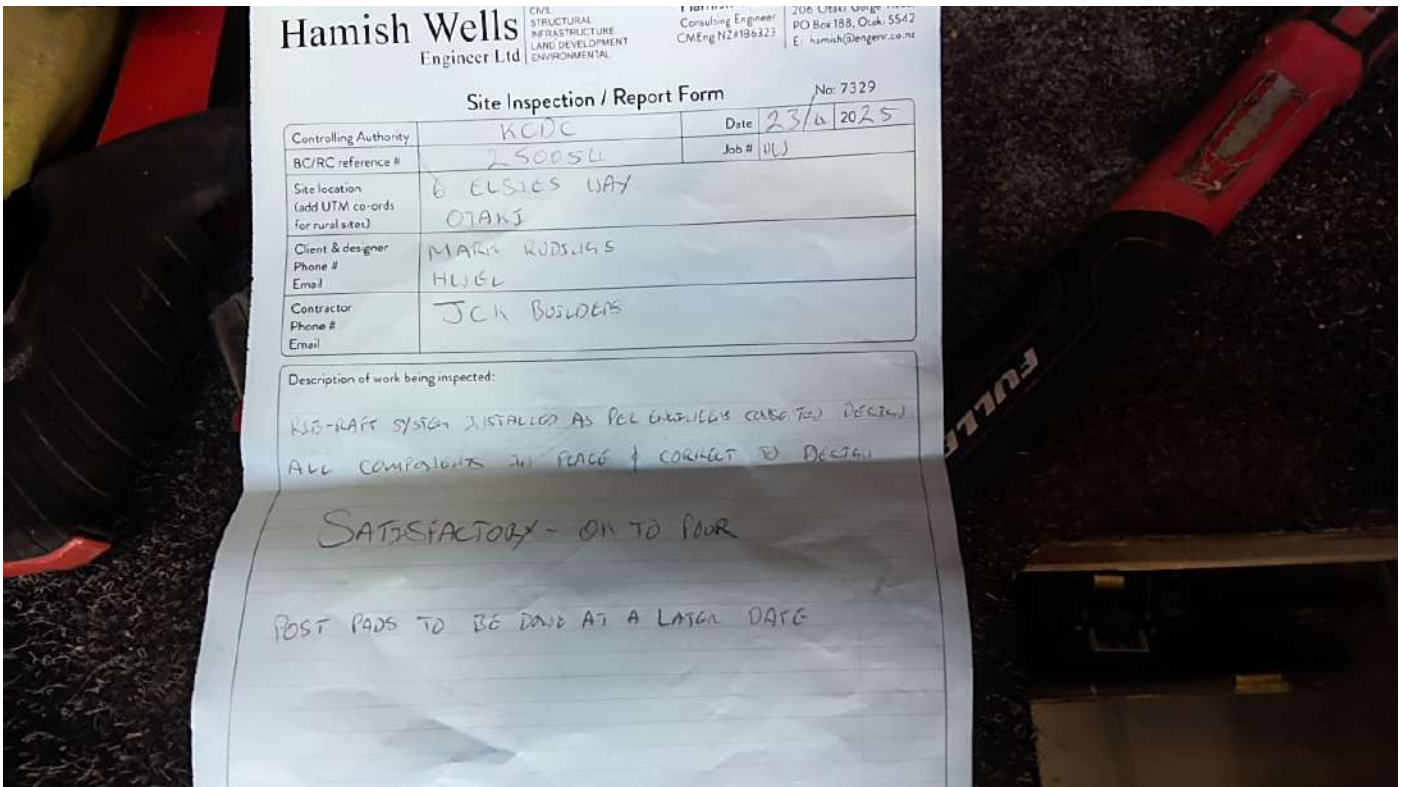 Hamish Wells
Engineer Ltd
CIVIL
STRUCTURAL
INFRASTRUCTURE
LAND DEVELOPMENT
ENVIRONMENTAL
Consulting Engineer
CMEng NZ#186323
206 Otaki Gorge Road
PO Box 188, Otaki 5542
E: hamish@engenr.co.nz
Site Inspection / Report Form
No: 7329
Controlling Authority KCDC
Date 23/ 2025
BC/RC reference # 250054
Job #
Site location
(add UTM co-ords
for rural sites)
6 ELSIES WAY
OTAKI
Client & designer
Phone #
Email
MARK
HWEL
Contractor
Phone #
Email
JCK BUILDERS
Description of work being inspected:
RIB-RAFT SYSTEM INSTALLED AS PER DESIGN
ALL COMPONENTS IN PLACE & CORRECT TO DESIGN
SATISFACTORY - OK TO POUR
POST PADS TO BE DONE AT A LATER DATE
FULLER